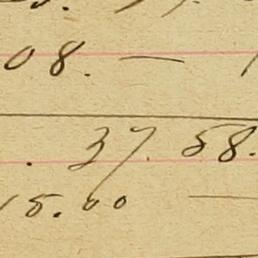 08. —
. 37. 58.
15.00 —